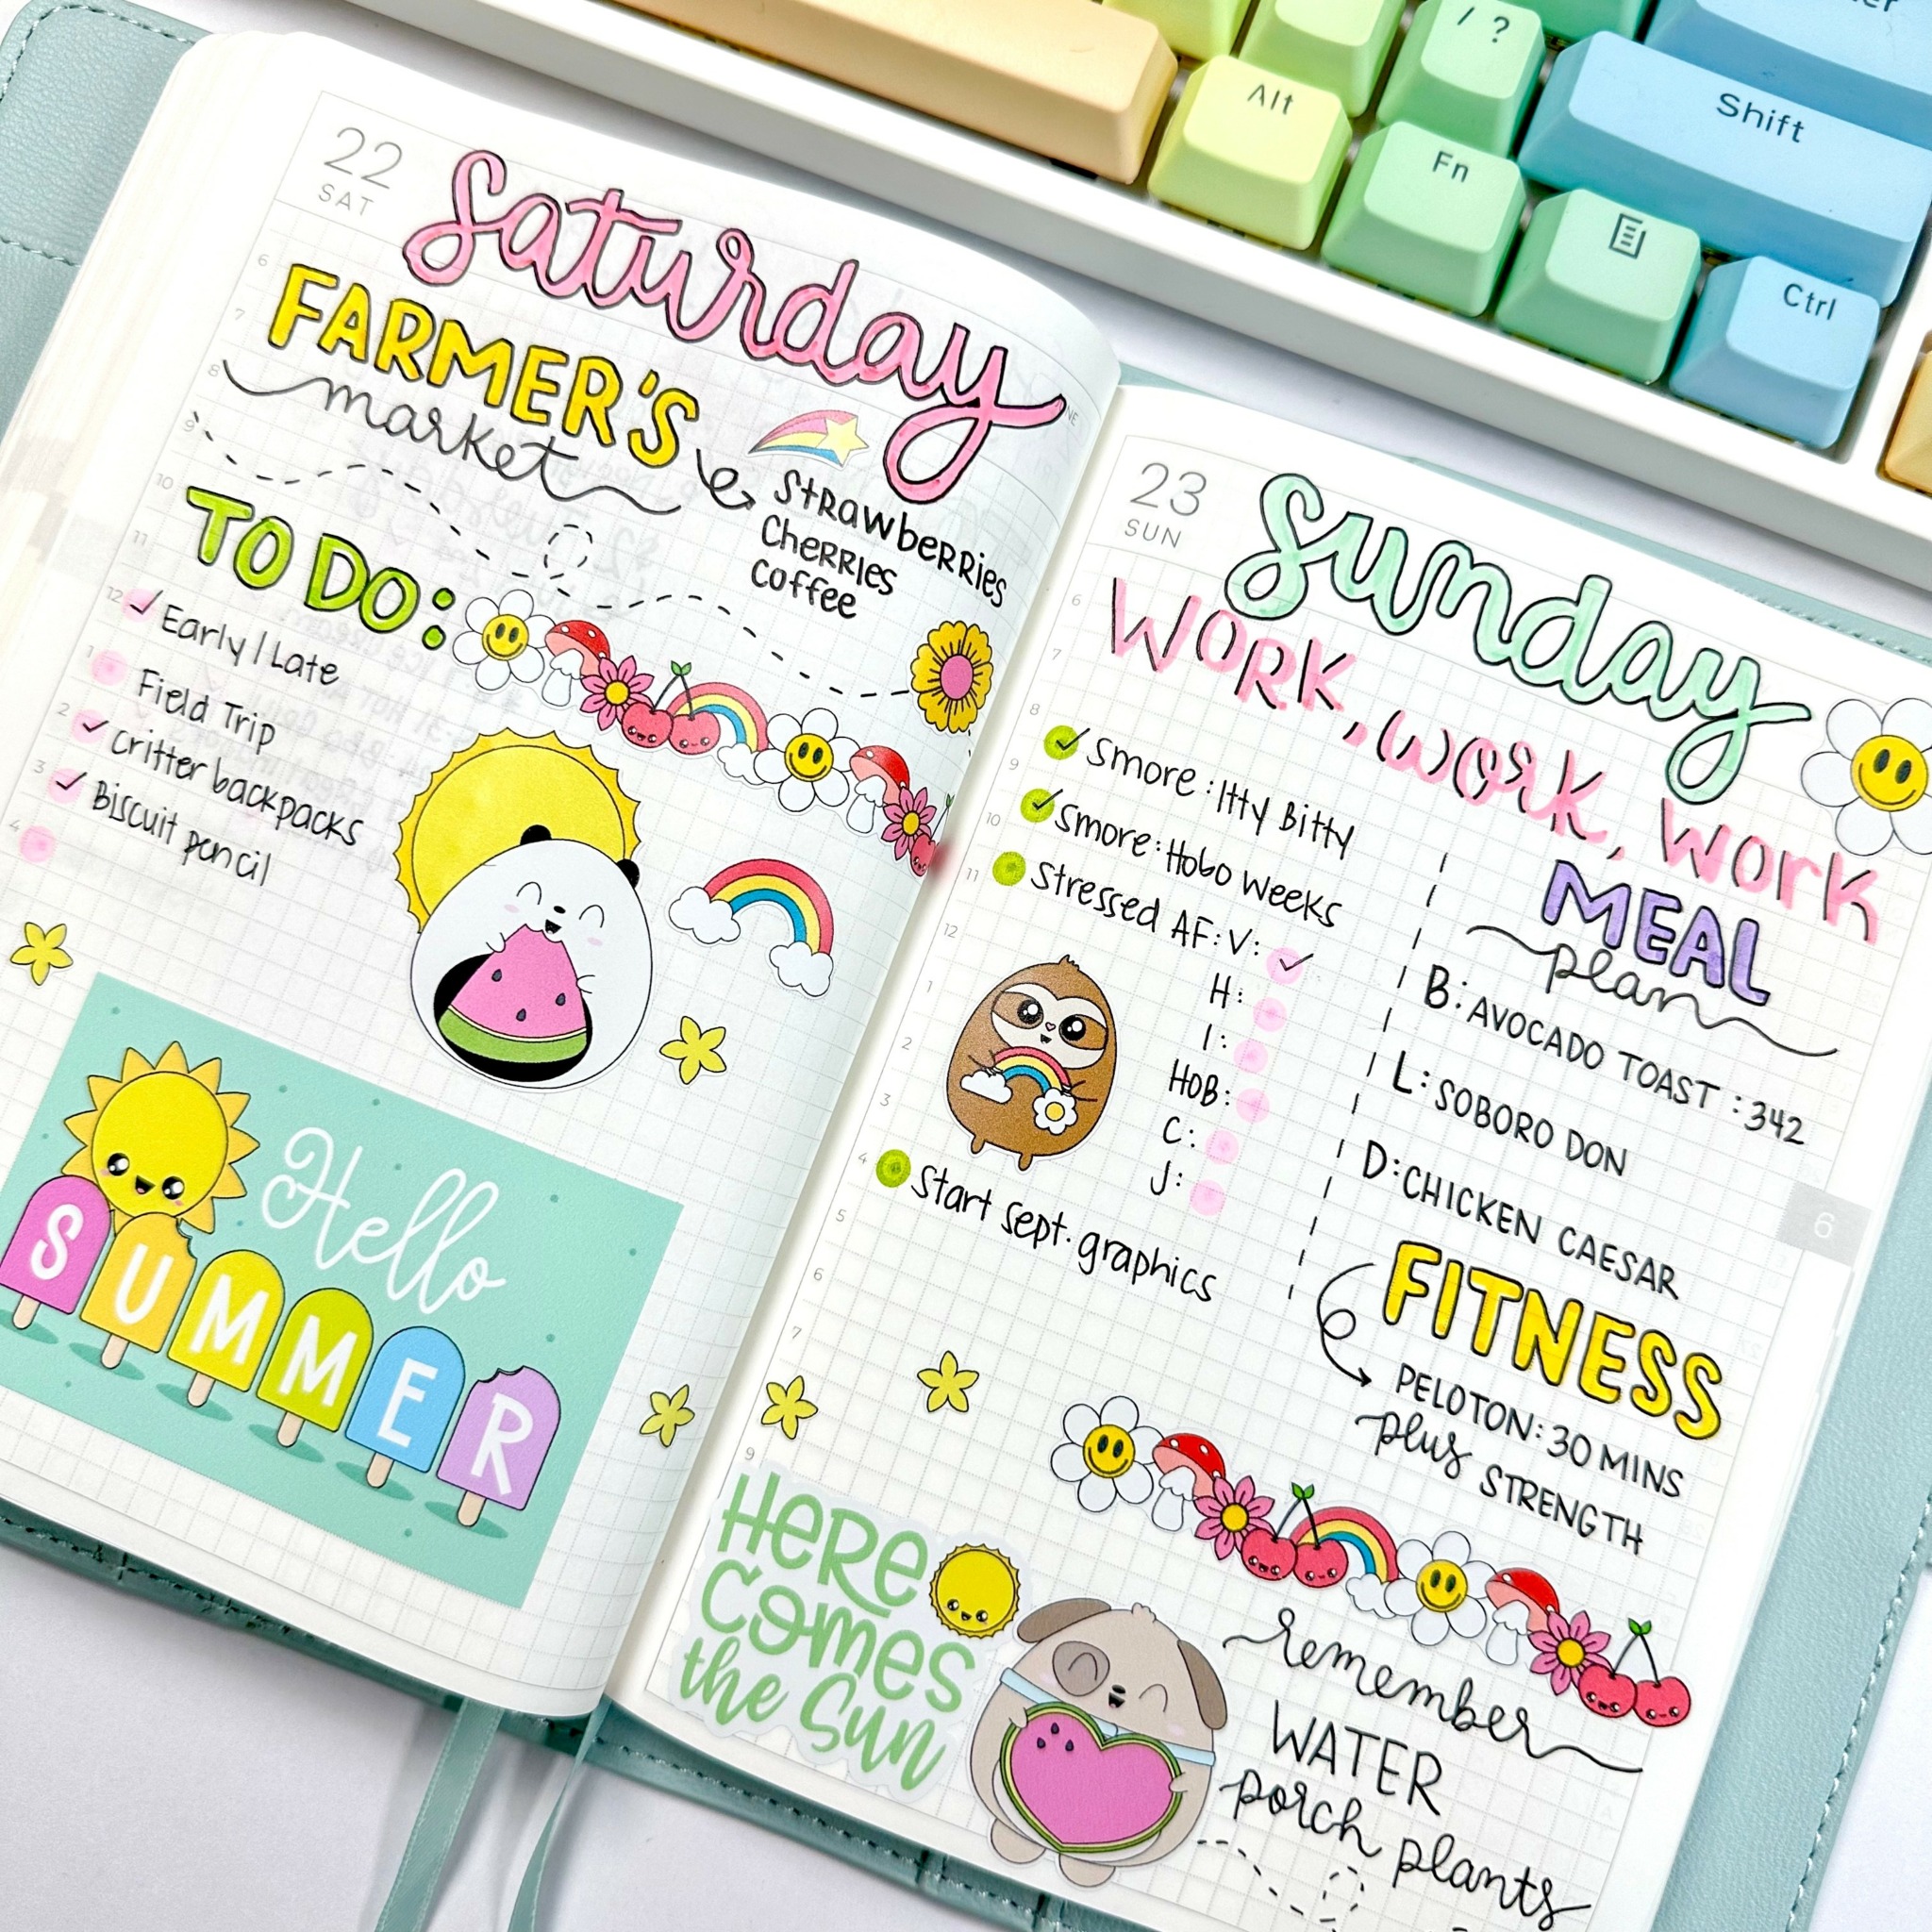 / ?
Alt
Shift
Fn
Ctrl
22
SAT
Saturday
6
FARMER'S
7
8
market
9
Strawberries
Cherries
Coffee
10
TO DO:
11
12
✓ Early/Late
1
Field Trip
2
✓ Critter backpacks
3
✓ Biscuit pencil
4
Hello
SUMMER
23
SUN
Sunday
6
WORK, work, work
7
8
✓ Smore: Itty Bitty
9
✓ Smore: Hobo Weeks
10
11
Stressed AF: V: ✓
12
H:
1
I:
2
HOB:
3
C:
J:
4
Start Sept. graphics
5
6
7
9
MEAL
plan
B: AVOCADO TOAST: 342
L: SOBORO DON
D: CHICKEN CAESAR
6
FITNESS
PELOTON: 30 MINS
plus STRENGTH
HERE
COMES
the Sun
remember
WATER
porch plants